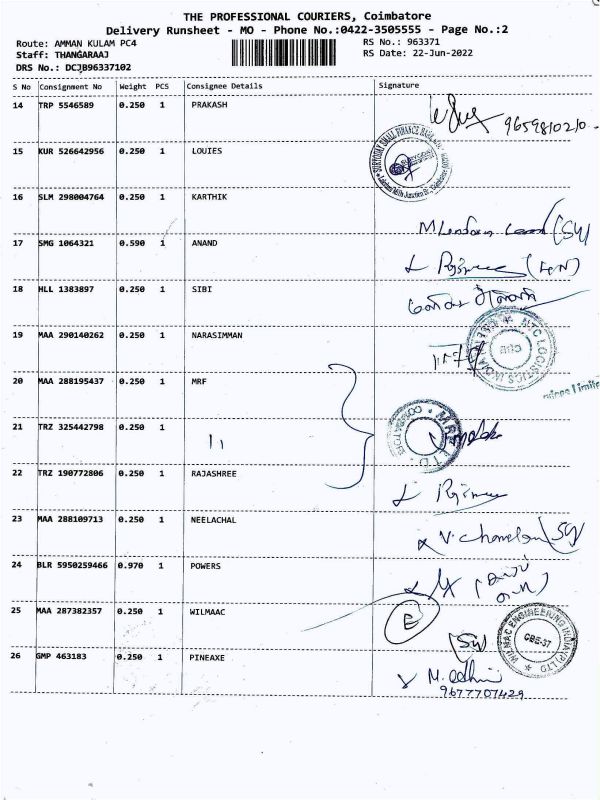 THE PROFESSIONAL COURIERS, Coimbatore
Delivery Runsheet - MO - Phone No.:0422-3505555 - Page No.:2
Route: AMMAN KULAM PC4
RS No.: 963371
Staff: THANGARAAJ
RS Date: 22-Jun-2022
DRS No.: DCJB96337102
S No Consignment No Weight PCS Consignee Details Signature
14 TRP 5546589 0.250 1 PRAKASH
9659810210
15 KUR 526642956 0.250 1 LOUIES
SURYODAY SMALL FINANCE BANK
16 SLM 298004764 0.250 1 KARTHIK
17 SMG 1064321 0.590 1 ANAND
18 HLL 1383897 0.250 1 SIBI
19 MAA 290140262 0.250 1 NARASIMMAN
NTC LOGISTICS INDIA
CBE
20 MAA 288195437 0.250 1 MRF
21 TRZ 325442798 0.250 1
MRF LTD.
22 TRZ 190772806 0.250 1 RAJASHREE
23 MAA 288109713 0.250 1 NEELACHAL
24 BLR 5950259466 0.970 1 POWERS
25 MAA 287382357 0.250 1 WILMAAC
E
WILMAC ENGINEERING INDIA (P) LTD
CBE-37
26 GMP 463183 0.250 1 PINEAXE
9677707429